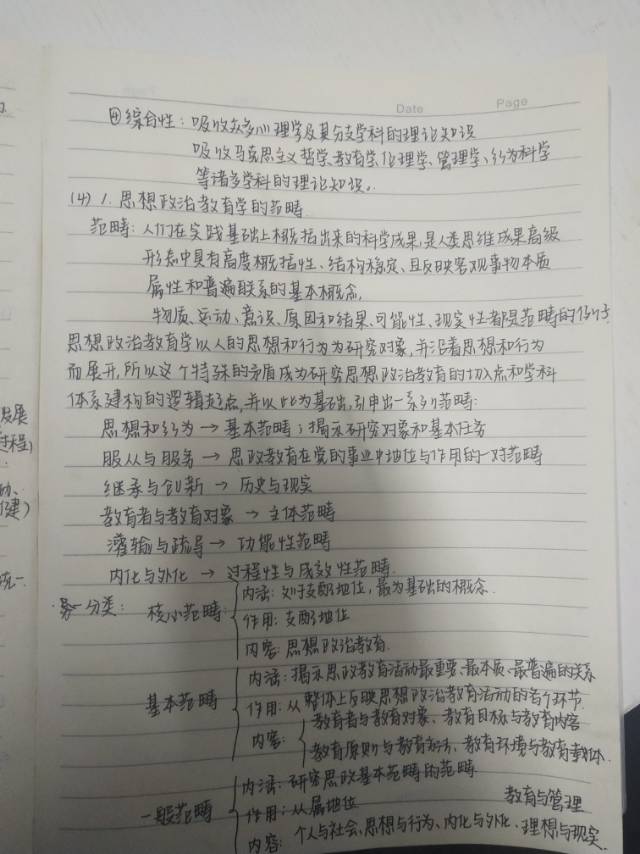 Date Page
④综合性：吸收众多心理学及其分支学科的理论知识
吸收马克思主义哲学、教育学、伦理学、管理学、行为科学
等诸多学科的理论知识。
(4) 1. 思想政治教育学的范畴
范畴：人们在实践基础上概括出来的科学成果，是人类思维成果高级
形态中具有高度概括性、结构稳定、且反映客观事物本质
属性和普遍联系的基本概念。
物质、运动、意识、原因和结果、可能性、现实性都是范畴的例子
思想政治教育学以人的思想和行为为研究对象，并沿着思想和行为
而展开，所以这个特殊的矛盾成为研究思想政治教育的切入点和学科
体系建构的逻辑起点，并以此为基础，引申出一系列范畴：
思想和行为→基本范畴：揭示研究对象和基本任务
服从与服务→思政教育在党的事业中地位与作用的一对范畴
继承与创新→历史与现实
教育者与教育对象→主体范畴
灌输与疏导→功能性范畴
内化与外化→过程性与成效性范畴
分类：
核心范畴
内涵：处于支配地位，最为基础的概念
作用：支配地位
内容：思想政治教育
基本范畴
内涵：揭示思政教育活动最重要、最本质、最普遍的关系
作用：从整体上反映思想政治教育活动的各个环节
内容：
教育者与教育对象、教育目标与教育内容
教育原则与教育方法、教育环境与教育载体
一般范畴
内涵：研究思政基本范畴的范畴
作用：从属地位
教育与管理
内容：个人与社会、思想与行为、内化与外化、理想与现实
发展
过程)